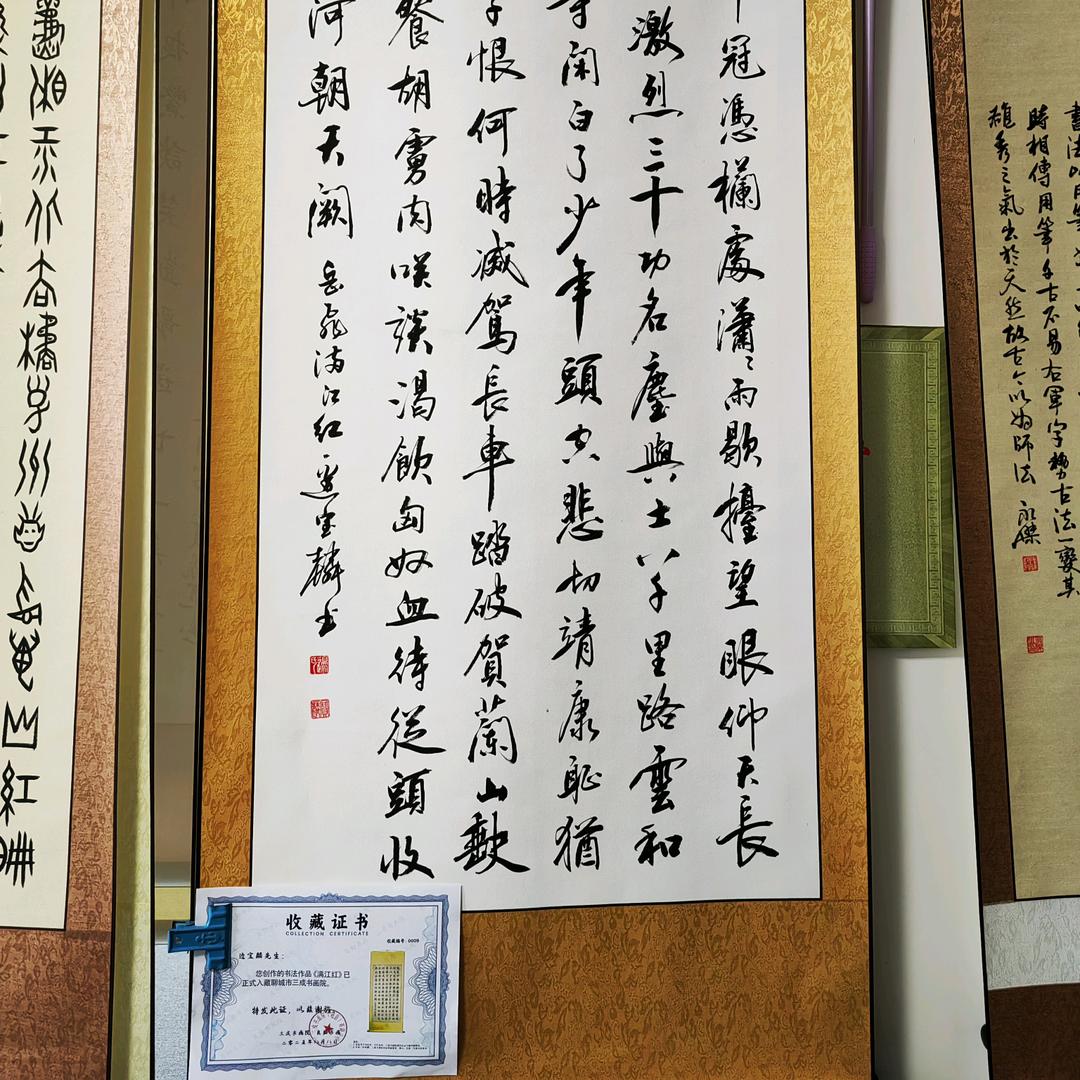 書法以用筆
時相傳用筆千古不易右軍字勢古法一變其
雄秀之氣出於天然故古今以為師法
冠憑欄處瀟〻雨歇擡望眼仰天長
激烈三十功名塵與土八千里路雲和
等閑白了少年頭空悲切靖康恥猶
子恨何時滅駕長車踏破賀蘭山缺
餐胡虜肉咲談渴飲匈奴血待從頭收
河朝天闕 岳飛满江红 邊宝麟书
湘江北去橘子洲頭看萬山紅
收藏证书
COLLECTION CERTIFICATE
收藏编号：0009
边宝麟先生：
您创作的书法作品《满江红》已
正式入藏聊城市三成书画院。
特发此证，以兹